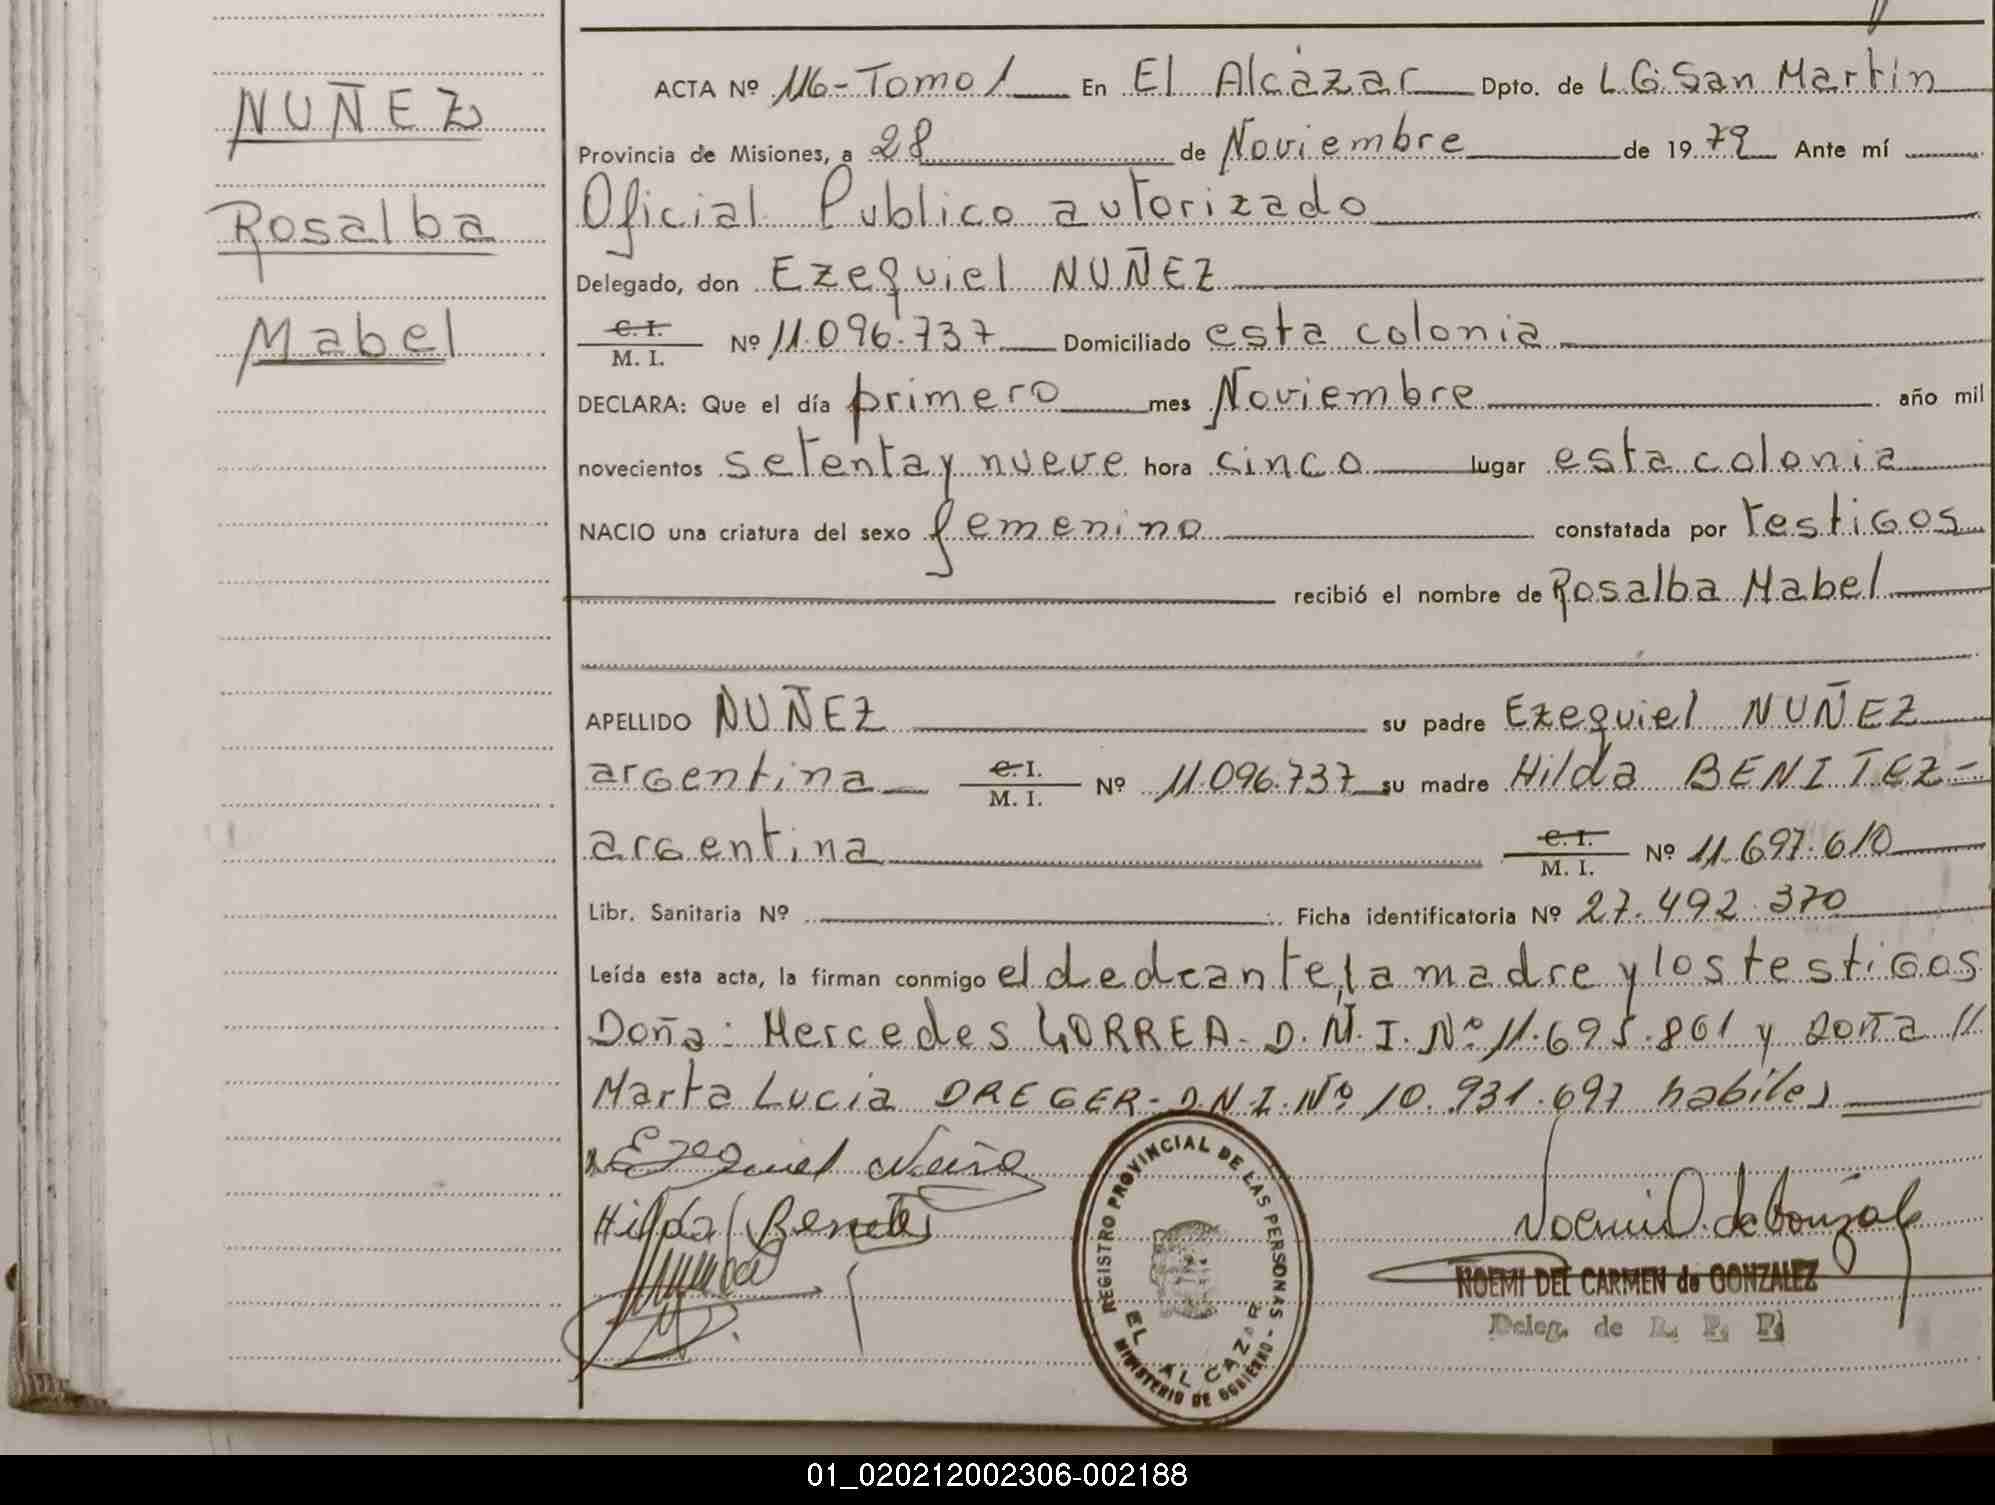 NUÑEZ
Rosalba
Mabel
ACTA Nº 116-Tomo 1 En El Alcázar Dpto. de L.G. San Martín
Provincia de Misiones, a 28 de Noviembre de 1979 Ante mí
Oficial Publico autorizado
Delegado, don Ezequiel NUÑEZ
C. I.
M. I. Nº 11.096.737 Domiciliado esta colonia
DECLARA: Que el día primero mes Noviembre año mil
novecientos setenta y nueve hora cinco lugar esta colonia
NACIO una criatura del sexo femenino constatada por testigos
recibió el nombre de Rosalba Mabel
APELLIDO NUÑEZ su padre Ezequiel NUÑEZ
argentina C. I. M. I. Nº 11.096.737 su madre Hilda BENITEZ-
argentina C. I. M. I. Nº 11.697.610
Libr. Sanitaria Nº Ficha identificatoria Nº 27.492.370
Leída esta acta, la firman conmigo el dedcante, la madre y los testigos
Doña: Mercedes CORREA- D.N.I. Nº 11.695.861 y doña //
Marta Lucia DREGER- D.N.I. Nº 10.931.697 habiles
Ezequiel Nuñe
Hilda Benitez
REGISTRO PROVINCIAL DE LAS PERSONAS - MINISTERIO DE GOBIERNO
EL ALCAZAR
Noemi D. de Gonzal
NOEMI DEL CARMEN de GONZALEZ
Deleg. de R. P. P.
01_020212002306-002188